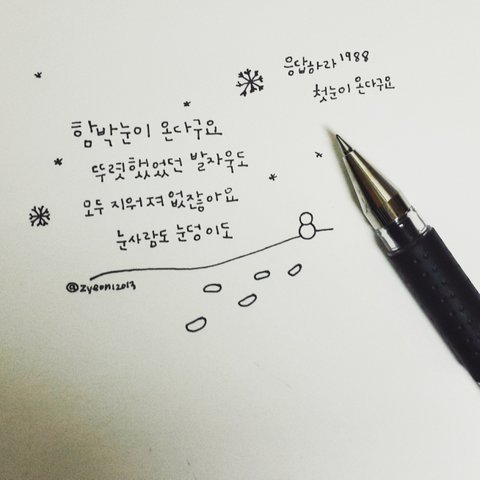 응답하라 1988
첫눈이 온다구요
함박눈이 온다구요
뚜렷했었던 발자욱도
모두 지워져 없잖아요
눈사람도 눈덩이도
@zyeoni2013